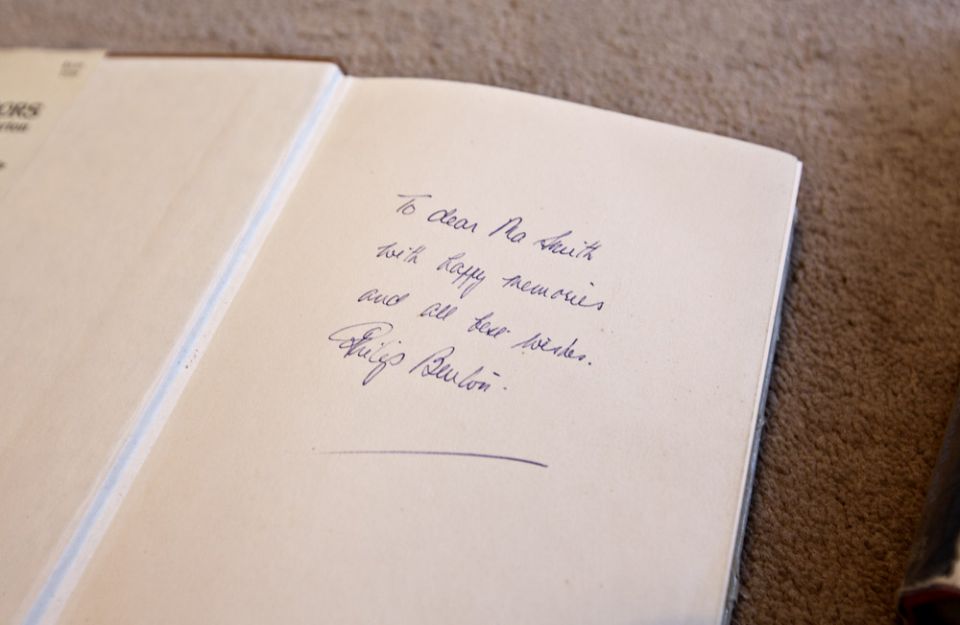 ORS
To dear Ma Smith
with happy memories
and all best wishes.
Philip Benton.